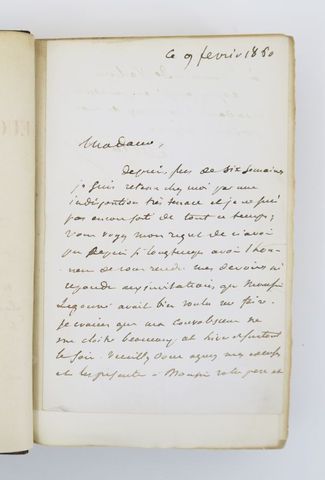 Ce 9 février 1880
Madame,
Depuis près de six semaines
je suis retenu chez moi par une
indisposition très tenace et je ne suis
pas encore sorti de tout ce temps;
vous voyez mon regret de n'avoir
pu depuis si longtemps avoir l'hon-
neur de vous rendre mes devoirs ni
répondre aux invitations que Monsieur
Legouvé avait bien voulu me faire.
Je crains que ma convalescence ne
me cloître beaucoup cet hiver surtout
le soir. Veuillez donc agréer mes
et les présenter à Monsieur votre père et